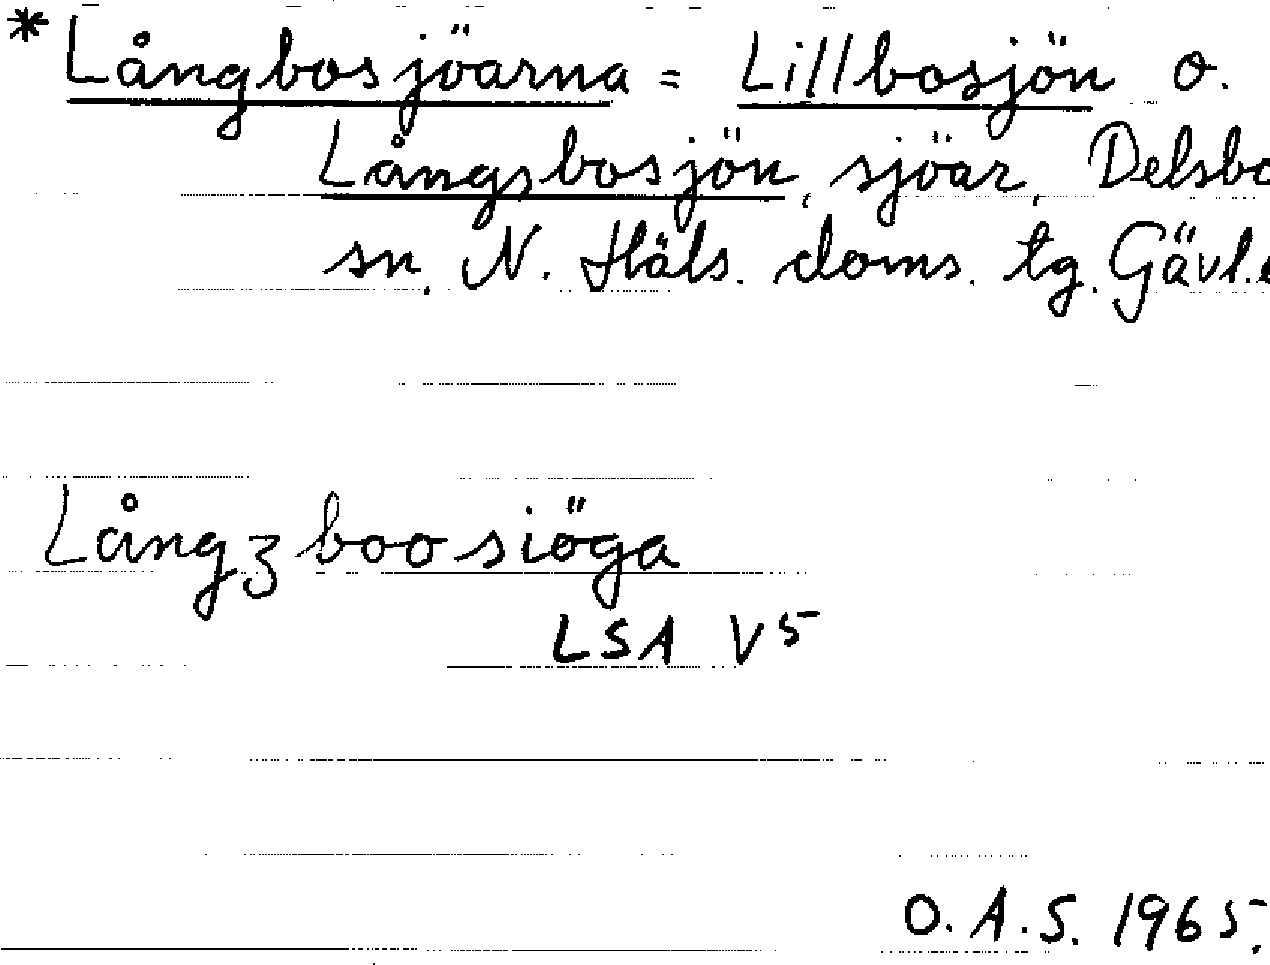 * Långbosjöarna = Lillbosjön o.
Långsbosjön, sjöar, Delsbo
sn, N. Häls. doms. tg. Gävl.
Långzboosiöga
LSA V5
O.A.S. 1965.